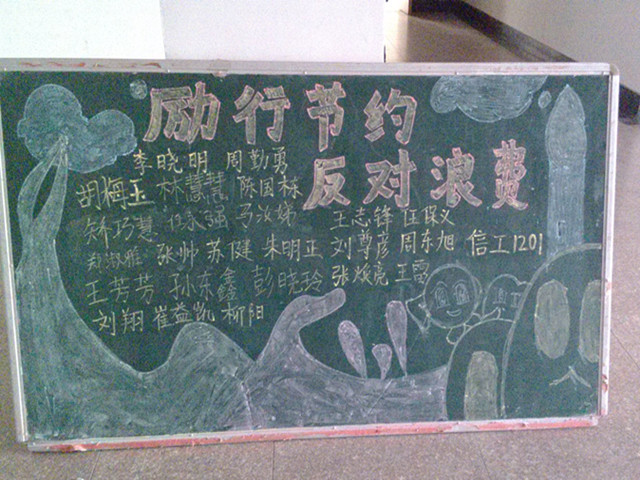 励行节约
反对浪费
李晓明 周勤勇
胡梅玉 林慧慧 陈国栋
矫巧慧 永强
王志锋 伍保义
郑淑雅 张帅 苏健 朱明正 刘尊彦 周东旭 信工1201
王芳芳 孙东鑫 彭晓玲 张焕亮 王露
刘翔 崔益凯 柳阳